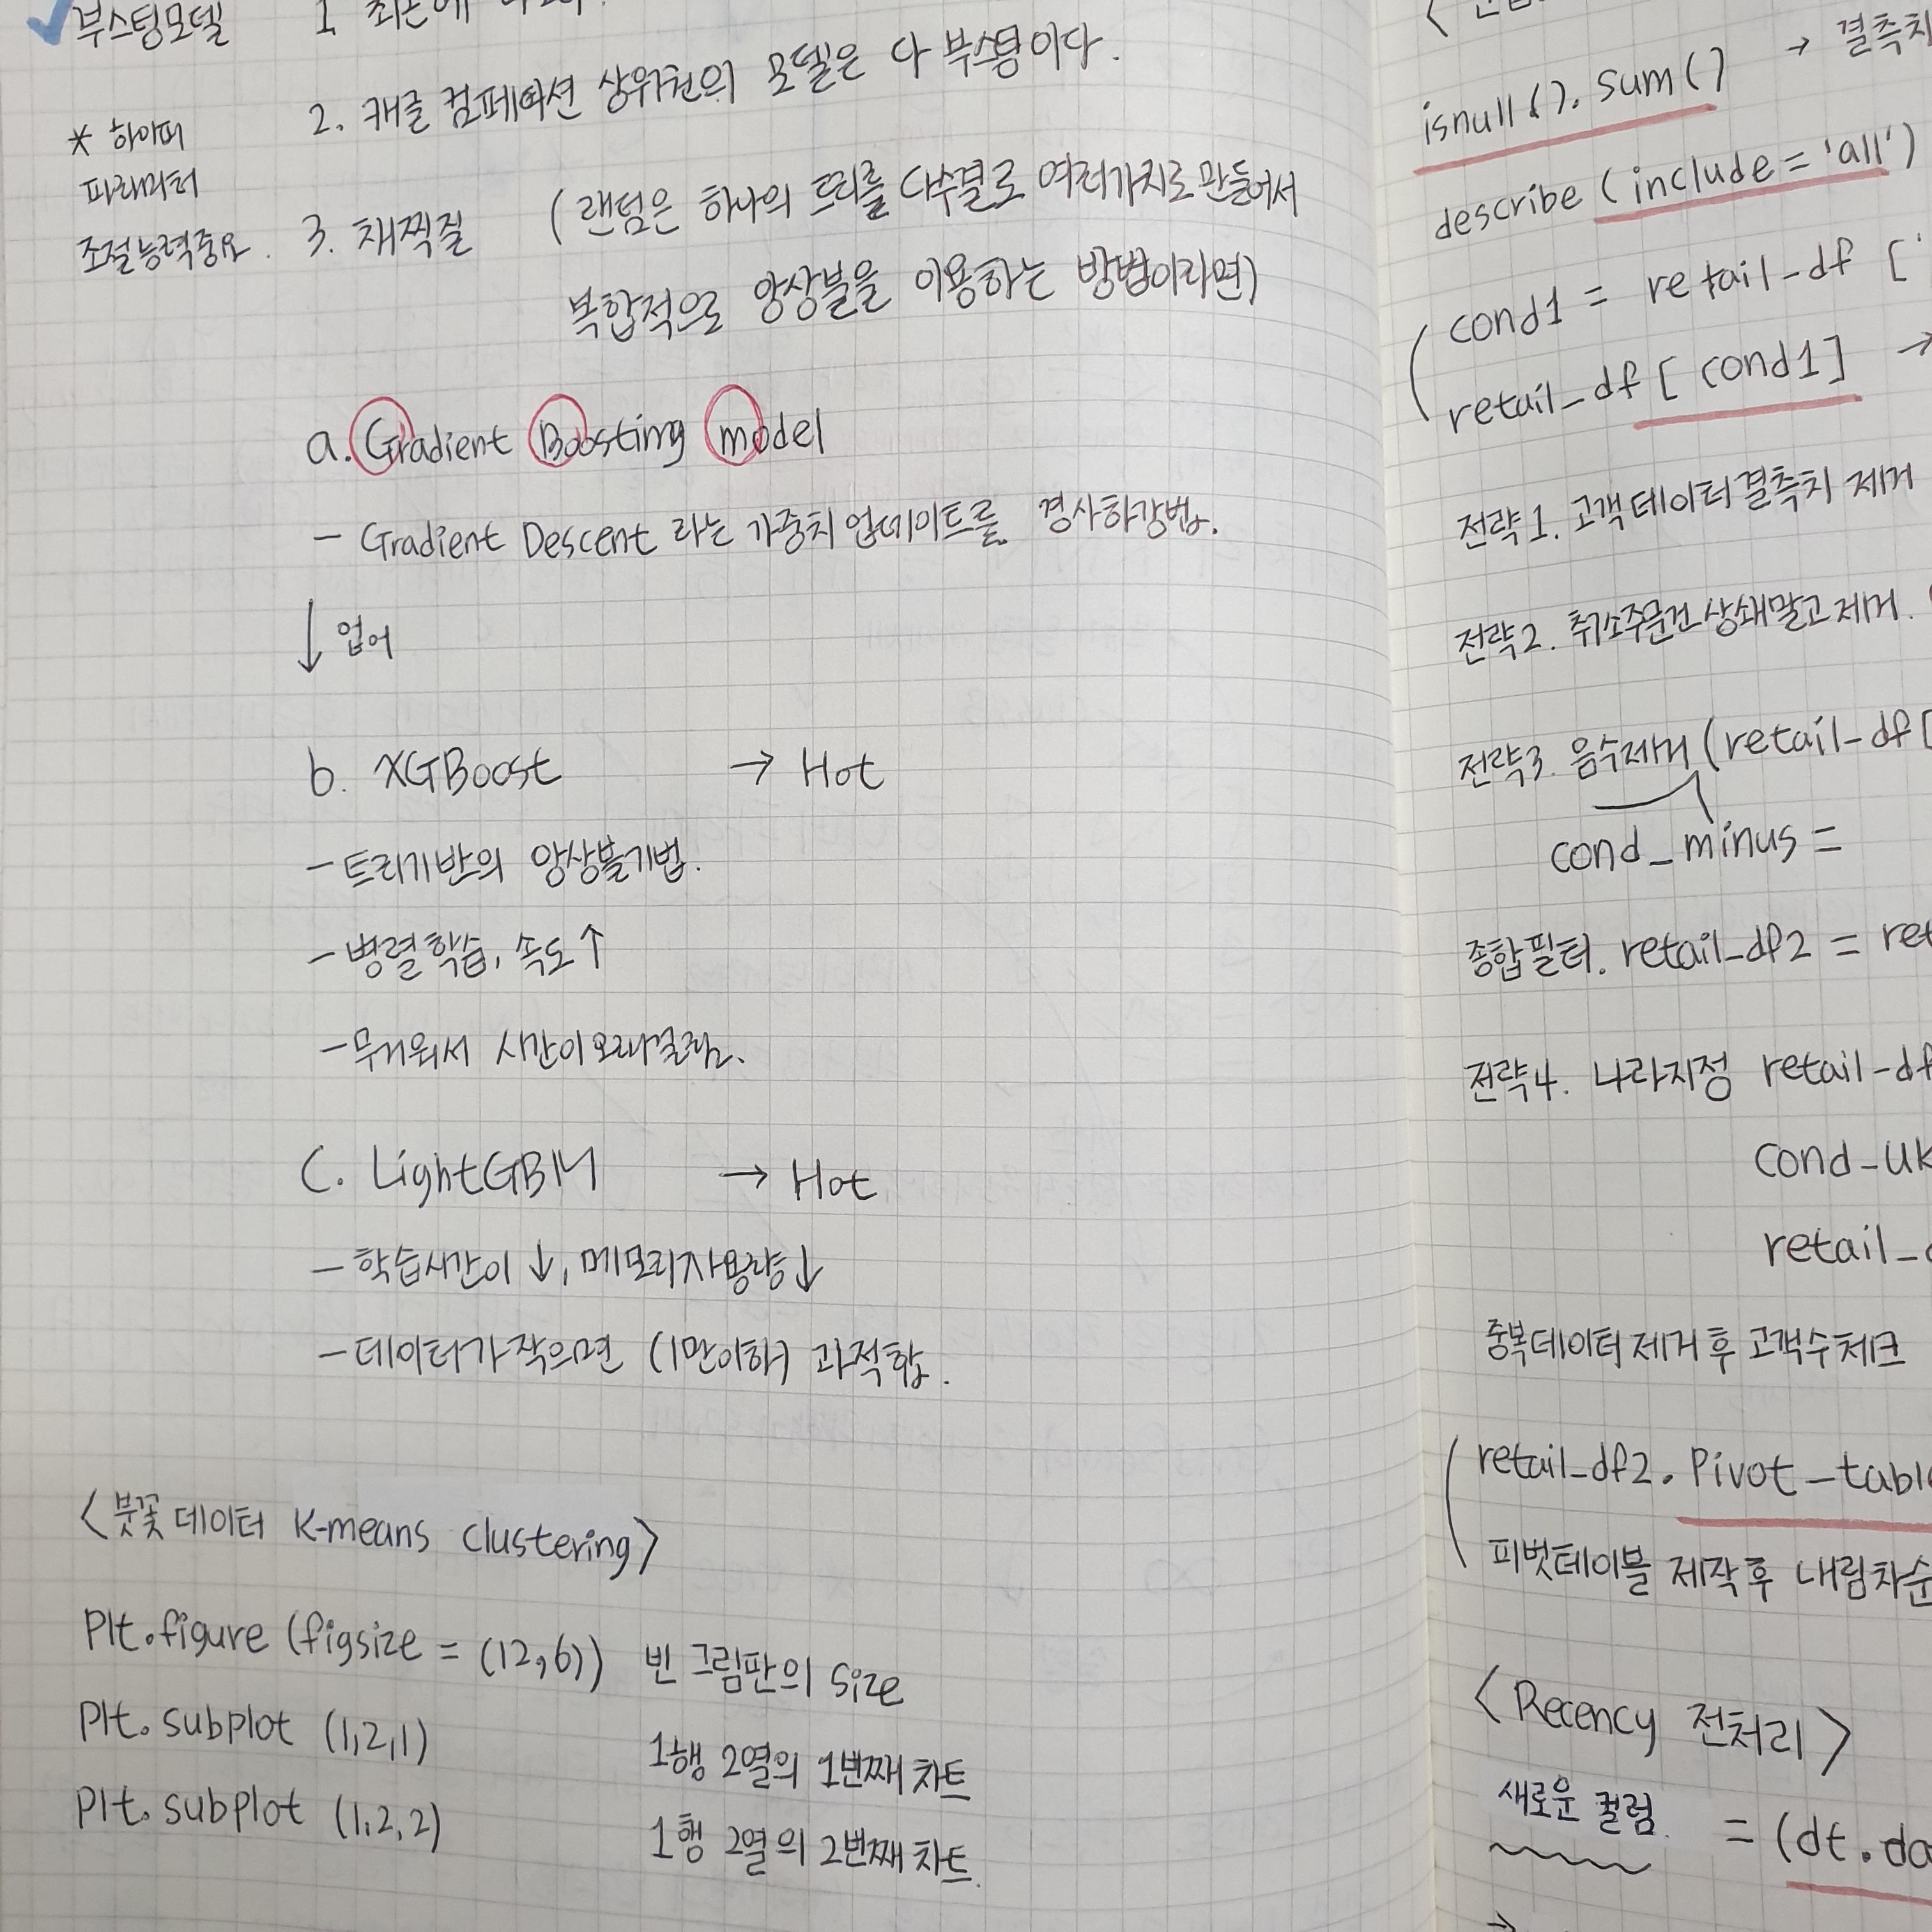 부스팅모델 1. 최근에
2. 캐글 컴페티션 상위권의 모델은 다 부스팅이다.
* 하이퍼
파라미터
조절능력중요.
3. 채찍질 (랜덤은 하나의 트리를 다수결로 여러가지로 만들어서
복합적으로 앙상블을 이용하는 방법이라면)
a. Gradient Boosting model
- Gradient Descent 라는 가중치 업데이트를 경사하강법.
↓ 업어
b. XGBoost → Hot
- 트리기반의 앙상블기법.
- 병렬학습, 속도↑
- 무거워서 시간이 오래걸림.
C. LightGBM → Hot
- 학습시간이 ↓, 메모리사용량↓
- 데이터가 작으면 (1만이하) 과적합.
<붓꽃 데이터 K-means clustering>
Plt.figure (figsize = (12,6)) 빈 그림판의 Size
Plt. subplot (1,2,1) 1행 2열의 1번째 차트
Plt. subplot (1,2,2) 1행 2열의 2번째 차트.
isnull(). sum() → 결측치
describe (include = 'all')
cond1 = retail_df ['
retail_df [cond1] →
전략1. 고객데이터 결측치 제거
전략2. 취소주문건 상쇄말고 제거.
전략3. 음수제거 (retail_df [
cond_minus =
종합필터. retail_df2 = ret
전략4. 나라지정 retail_df
cond_UK
retail_
중복데이터 제거 후 고객수 체크
retail_df2. Pivot_table
피벗테이블 제작 후 내림차순
<Recency 전처리>
새로운 컬럼. = (dt.da